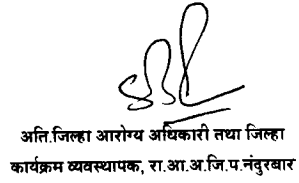 अति.जिल्हा आरोग्य अधिकारी तथा जिल्हा
कार्यक्रम व्यवस्थापक, रा.आ.अ.जि.प.नंदुरबार